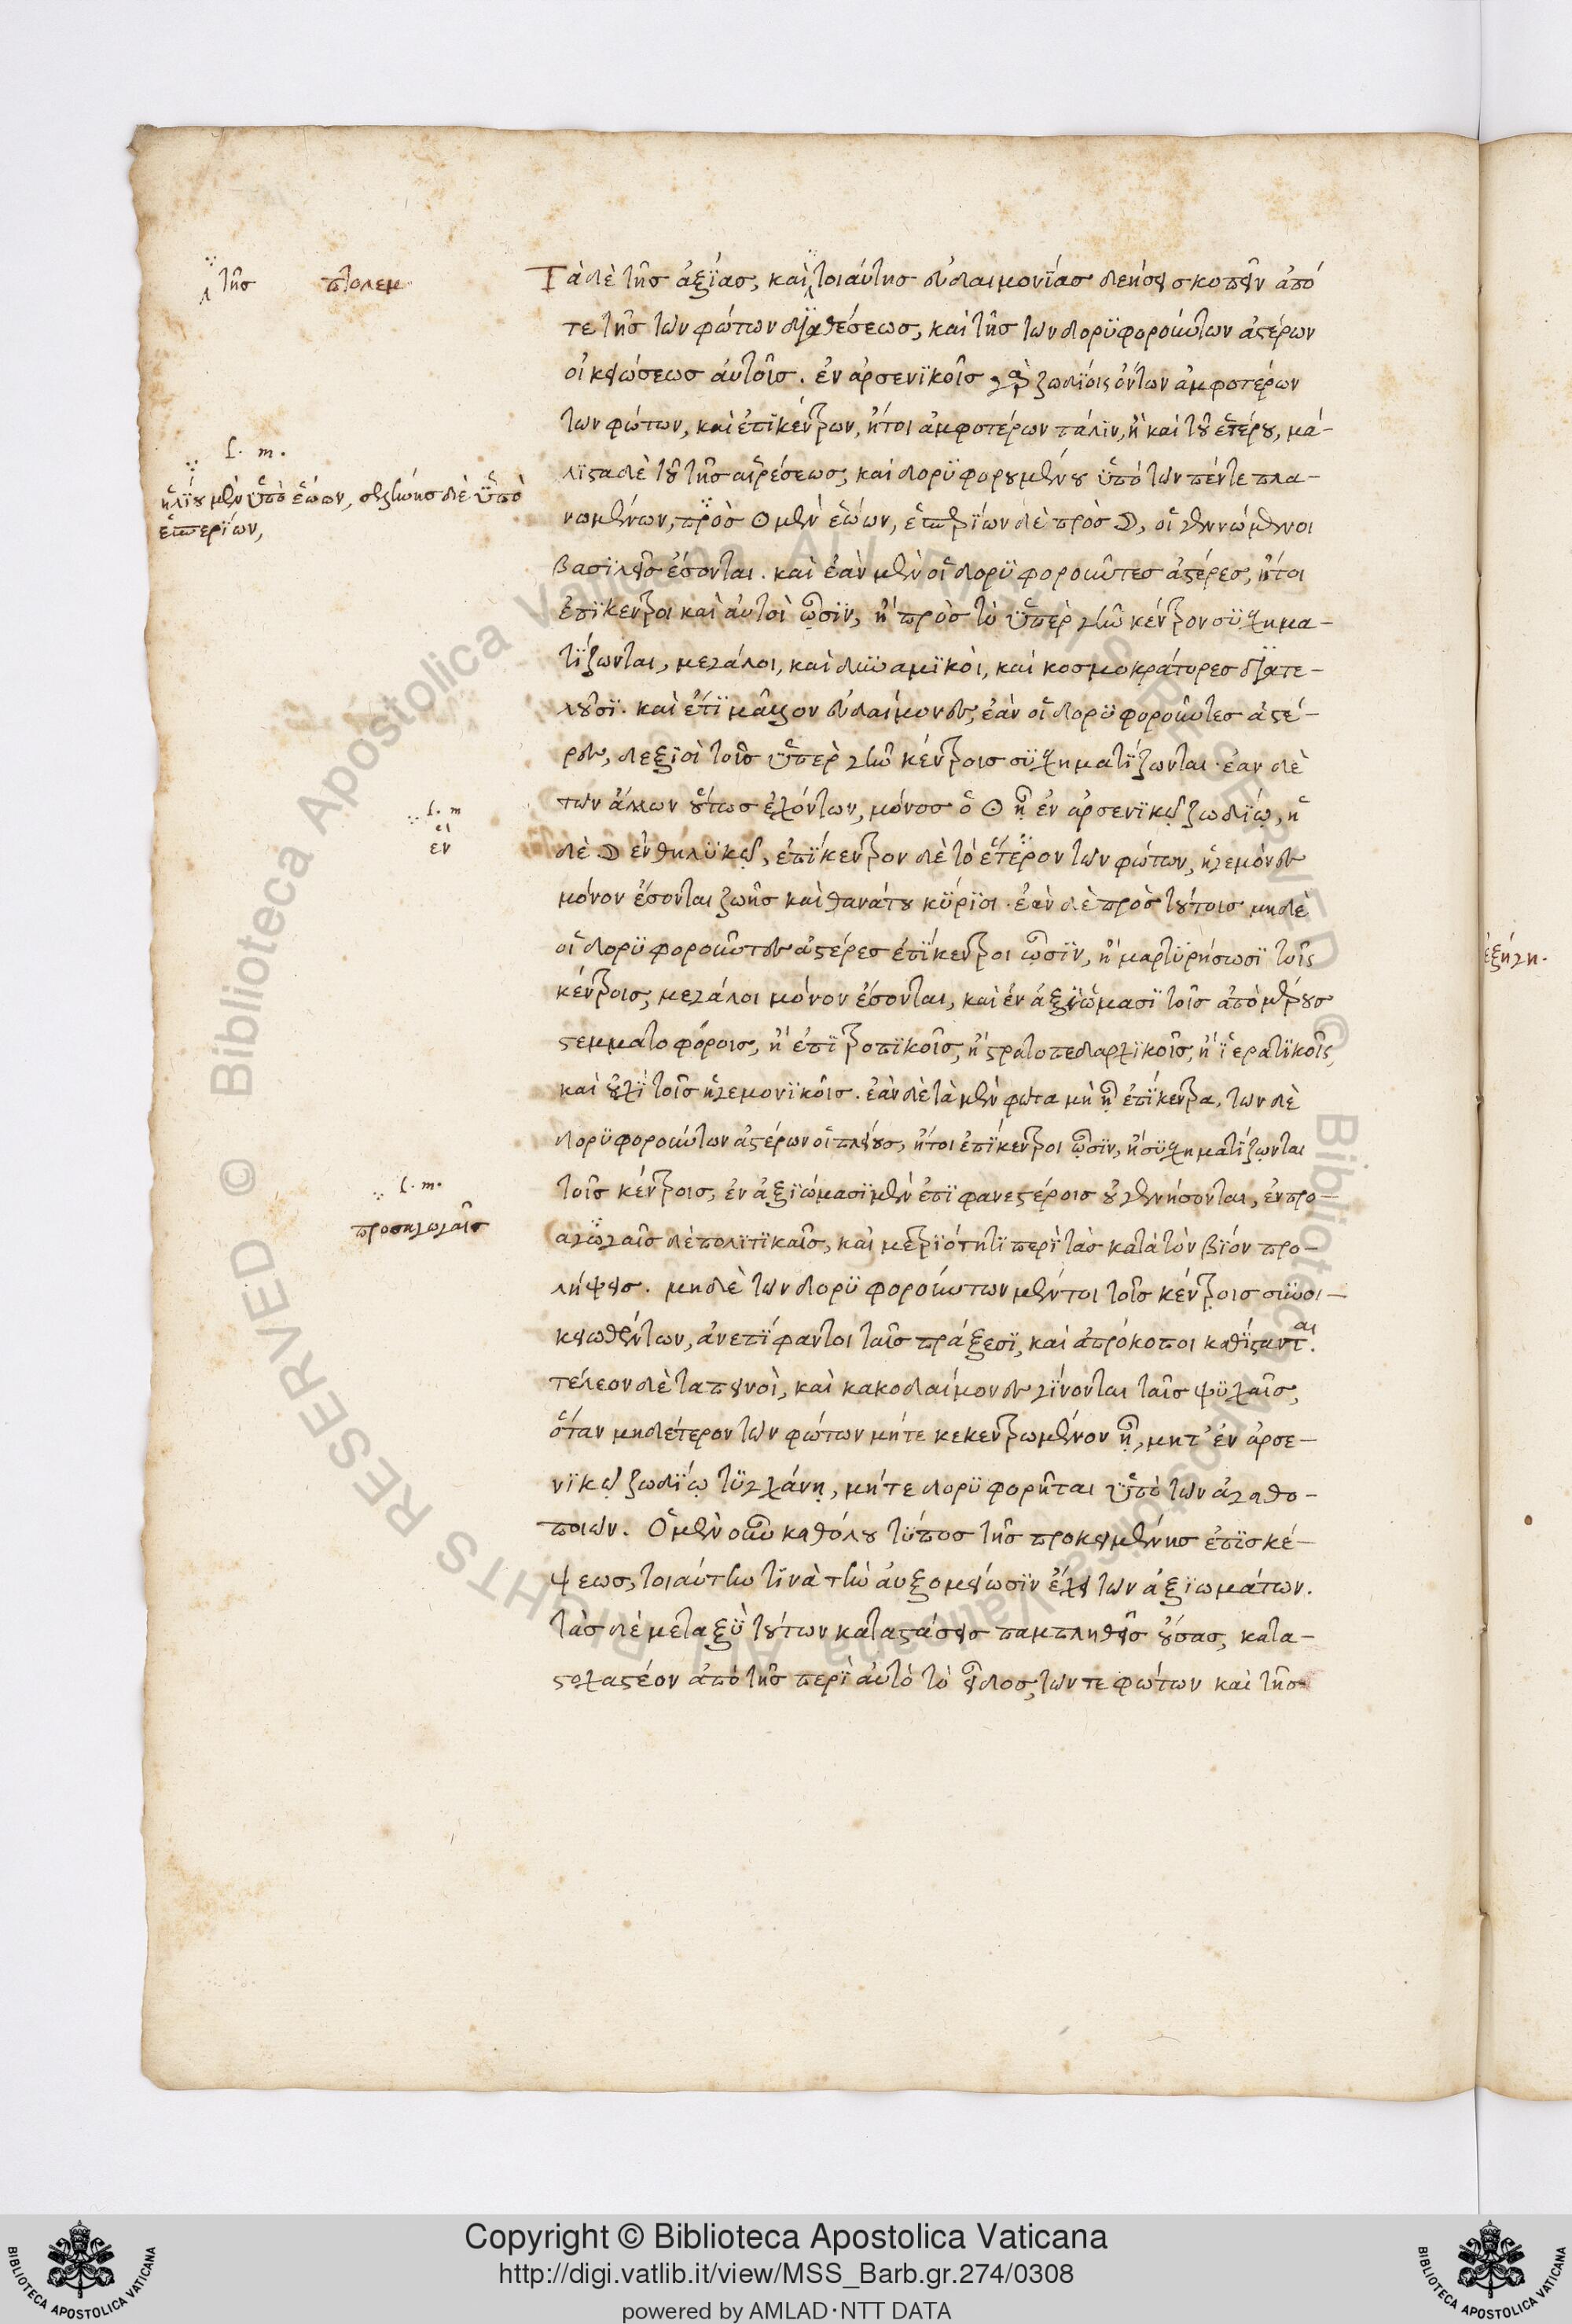 τῆς
πτολεμ
Τὰ δὲ τῆς ἀξΐας, καὶ τοιαύτης εὐδαιμονΐας δεήσει σκοπεῖν ἀπό
τε τῆς τῶν φώτων δϊαθέσεως, καὶ τῆς τῶν δορϋφορούντων ἀστέρων
οἰκειώσεως αὐτοῖς. ἐν ἀρσενϊκοῖς γὰρ ζωδΐοις ὄντων ἀμφοτέρων
τῶν φώτων, καὶ ἐπικέντρων, ἤτοι ἀμφοτέρων πάλϊν, ἢ καὶ τοῦ ἑτέρου, μά-
λϊστα δὲ τοῦ τῆς αἱρέσεως, καὶ δορϋφορουμένου ϋπὸ τῶν πέντε πλα-
νωμένων, πρὸς ☉ μὲν ἑώων, ἑσπερΐων δὲ πρὸς ☽, οἱ γεννώμενοι
βασϊλεῖς ἔσονται. καὶ ἐὰν μὲν οἱ δορϋφοροῦντες ἀστέρες, ἤτοι
ἐπΐκεντροι καὶ αὐτοὶ ὦσϊν, ἢ πρὸς τὸ ϋπὲρ γῆν κέντρον σϋσχημα-
τΐζωνται, μεγάλοι, καὶ δυναμϊκοὶ, καὶ κοσμοκράτορες δϊατε-
λοῦσϊ. καὶ ἔτϊ μᾶλλον εὐδαίμονες, ἐὰν οἱ δορϋφοροῦντες ἀστέ-
ρες, δεξϊοὶ τοῖς ϋπὲρ γῆν κέντροις σϋσχηματΐζωνται. ἐὰν δὲ
τῶν ἄλλων οὕτως ἐχόντων, μόνος ὁ ☉ ᾖ ἐν ἀρσενϊκῷ ζωδΐῳ, ἡ
δὲ ☽ ἐν θηλϋκῷ, ἐπΐκεντρον δὲ τὸ ἕτερον τῶν φώτων, ἡγεμόνες
μόνον ἔσονται ζωῆς καὶ θανάτου κϋρϊοι. ἐὰν δὲ πρὸς τούτοις μηδὲ
οἱ δορϋφοροῦντες ἀστέρες ἐπΐκεντροι ὦσϊν, ἢ μαρτϋρήσωσϊ τοῖς
κέντροις, μεγάλοι μόνον ἔσονται, καὶ ἐν ἀξϊώμασϊ τοῖς ἀπὸ μέρους
στεμματοφόροις, ἢ ἐπϊτροπϊκοῖς, ἢ στρατοπεδαρχϊκοῖς, ἢ ἱερατϊκοῖς,
καὶ οὐχὶ τοῖς ἡγεμονϊκοῖς. ἐὰν δὲ τὰ μὲν φῶτα μὴ ᾖ ἐπΐκεντρα, τῶν δὲ
δορϋφορούντων ἀστέρων οἱ πλείους, ἤτοι ἐπΐκεντροι ὦσϊν, ἢ σϋσχηματΐζωνται
τοῖς κέντροις, ἐν ἀξϊώμασϊ μὲν ἐπϊφανεστέροις οὐ γενήσονται, ἐν προ-
αγωγαῖς δὲ πολϊτϊκαῖς, καὶ μετρϊότητϊ περὶ τὰς κατὰ τὸν βΐον προ-
λήψεις. μηδὲ τῶν δορϋφορούντων μέντοι τοῖς κέντροις συνοι-
κειωθέντων, ἀνεπΐφαντοι ταῖς πράξεσϊ, καὶ ἀπρόκοποι καθΐστανται.
τέλεον δὲ ταπεινοὶ, καὶ κακοδαίμονες γΐνονται ταῖς ψϋχαῖς,
ὅταν μηδέτερον τῶν φώτων μήτε κεκεντρωμένον ᾖ, μήτ' ἐν ἀρσε-
νϊκῷ ζωδΐῳ τϋγχάνῃ, μήτε δορϋφορῆται ϋπὸ τῶν ἀγαθο-
ποιῶν. Ὁ μὲν οὖν καθόλου τΰπος τῆς προκειμένης ἐπϊσκέ-
ψεως, τοιαύτην τϊνὰ τὴν αὐξομείωσϊν ἔχει τῶν ἀξϊωμάτων.
τὰς δὲ μεταξὺ τούτων καταστάσεις παμπληθεῖς οὔσας, κατα-
στοχαστέον ἀπὸ τῆς περὶ αὐτὸ τὸ εἶδος, τῶν τε φώτων καὶ τῆς
f. m.
ἡλΐου μὲν ϋπὸ ἑώων, σελήνης δὲ ϋπὸ
ἑσπερΐων,
f. m
ἐν
f. m.
προσηγωγαῖς
ἐξήγη.
© Biblioteca Apostolica Vaticana ALL RIGHTS RESERVED
Copyright © Biblioteca Apostolica Vaticana
http://digi.vatlib.it/view/MSS_Barb.gr.274/0308
powered by AMLAD·NTT DATA
BIBLIOTECA APOSTOLICA VATICANA
BIBLIOTECA APOSTOLICA VATICANA